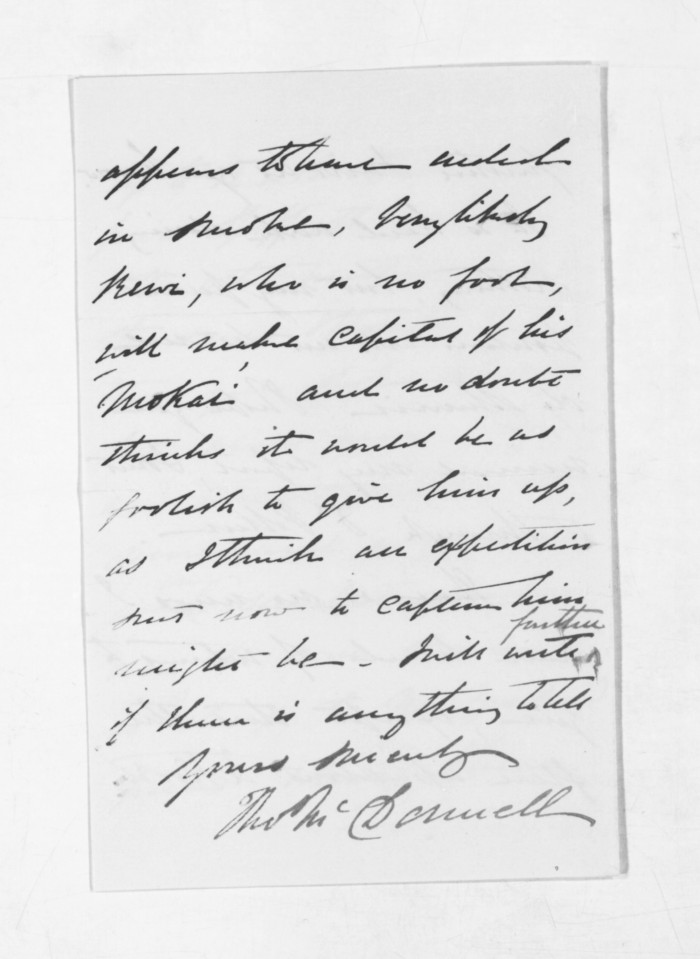 appears to have ended
in smoke, very likely
Rewi, who is no fool,
will make capital of his
'Mokai' and no doubt
thinks it would be as
foolish to give him up,
as I think an expedition
sent now to capture him
might be - I will write further
if there is anything to tell
Yours sincerely
Thos McDonnell